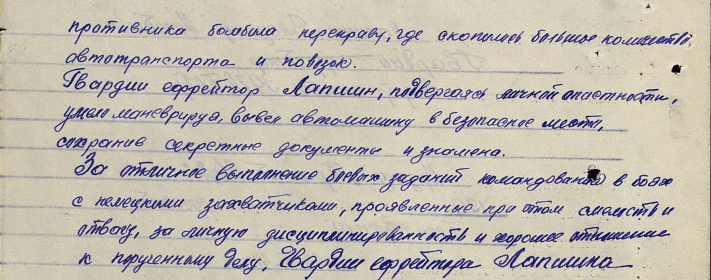 противника бомбила переправу, где скопилось большое количество
автотранспорта и повозок.
Гвардии ефрейтор Лапшин, подвергаясь личной опастности,
умело маневрируя, вывел автомашину в безопасное место,
сохранив секретные документы и знамена.
За отличное выполнение боевых заданий командования в боях
с немецкими захватчиками, проявленные при этом смелость и
отвагу, за личную дисциплинированность и хорошее отношение
к порученному делу, Гвардии ефрейтора Лапшина